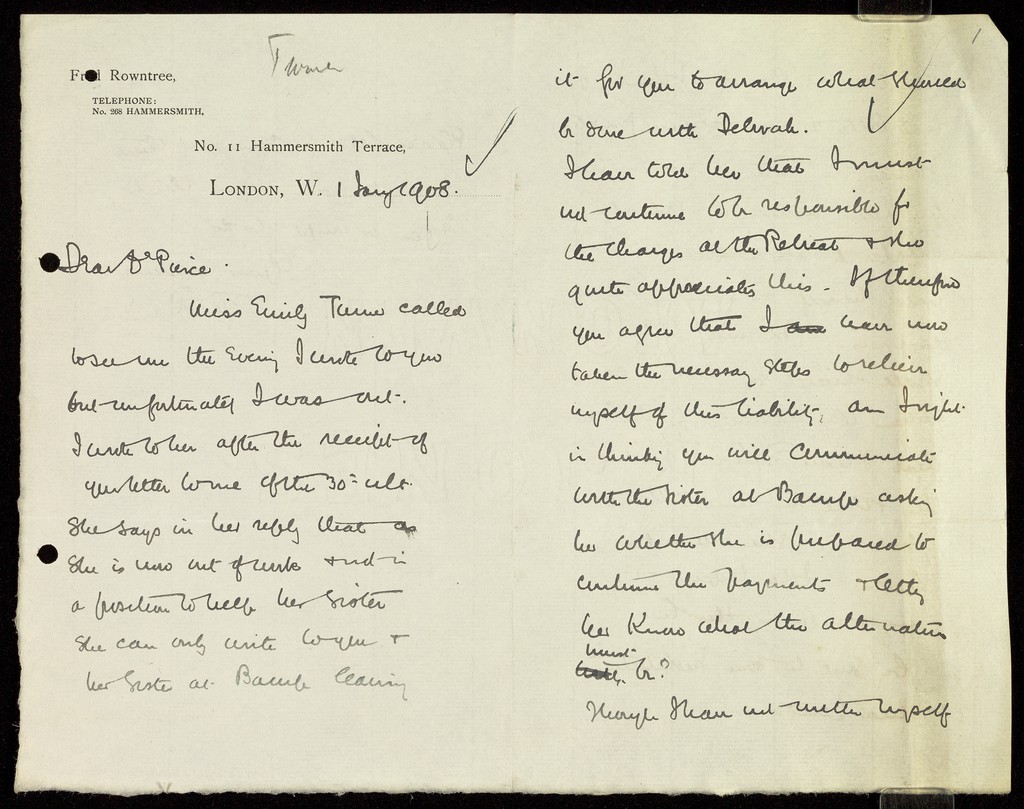 Turner
Fred Rowntree,
TELEPHONE:
No. 268 HAMMERSMITH.
No. 11 Hammersmith Terrace,
LONDON, W. 1 Jany 1908.
Dear Dr Pierce.
Miss Emily Turner called
to see me the Evening I wrote to you
but unfortunately I was out.
I wrote to her after the receipt of
your letter to me of the 30th ult.
She says in her reply that as
She is now out of work & not in
a position to help her Sister
She can only write to you &
her Sister at Bacup leaving
1
it for you to arrange what should
be done with Deborah.
I have told her that I must
not continue to be responsible for
the charges at the Retreat & she
quite appreciates this. If therefore
you agree that I am have now
taken the necessary steps to relieve
myself of this liability, am I right
in thinking you will communicate
with the Sister at Bacup asking
her whether she is prepared to
continue the payments & letting
her know what the alternative
must
be?
Though I have not written myself